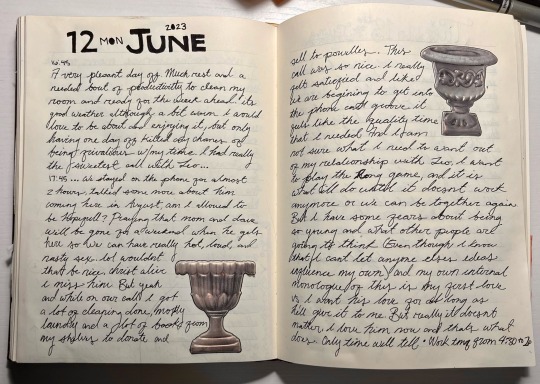 12 MON JUNE 2023
16:45
A very plesant day off. Much rest and a
needed bout of productivity to clean my
room and ready for the week ahead. its
good weather although a bit warm. I would
love to be about and enjoying it, but only
having one day off killed any chance of
being frivalous w/ my time. I had really
the sweetest call with two...
17:45 ... we stayed on the phone for almost
2 hours, talked some more about him
coming here in August, am I allowed to
be hopefull? Praying that mom and dave
will be gone for a weekend when he gets
here so we can have really hot, loud, and
nasty sex. lol wouldnt
that be nice. christ alive
i miss him. But yeah
and while on our call i got
a lot of cleaning done, mostly
laundry and a lot of books from
my shelves to donate and
sell to powelles. This
call was so nice. i really
felt satisfied and like
we are begining to get into
the phone call groove it
feels like the quality time
that i needed. And I am
not sure what i need to want out
of my relationship with two, I want
to play the long game, and it is
what ill do until it doesnt work
anymore or we can be together again
But i have some fears about being
so young and what other people are
going to think. Even though i know
that i cant let anyone elses ideas
influence my own, and my own internal
monologue of this is my first love
vs i want his love for as long as
hill give it to me. But really it doesnt
matter i love him now and thats what
does. Only time will tell • Work tmq from 4:30 to